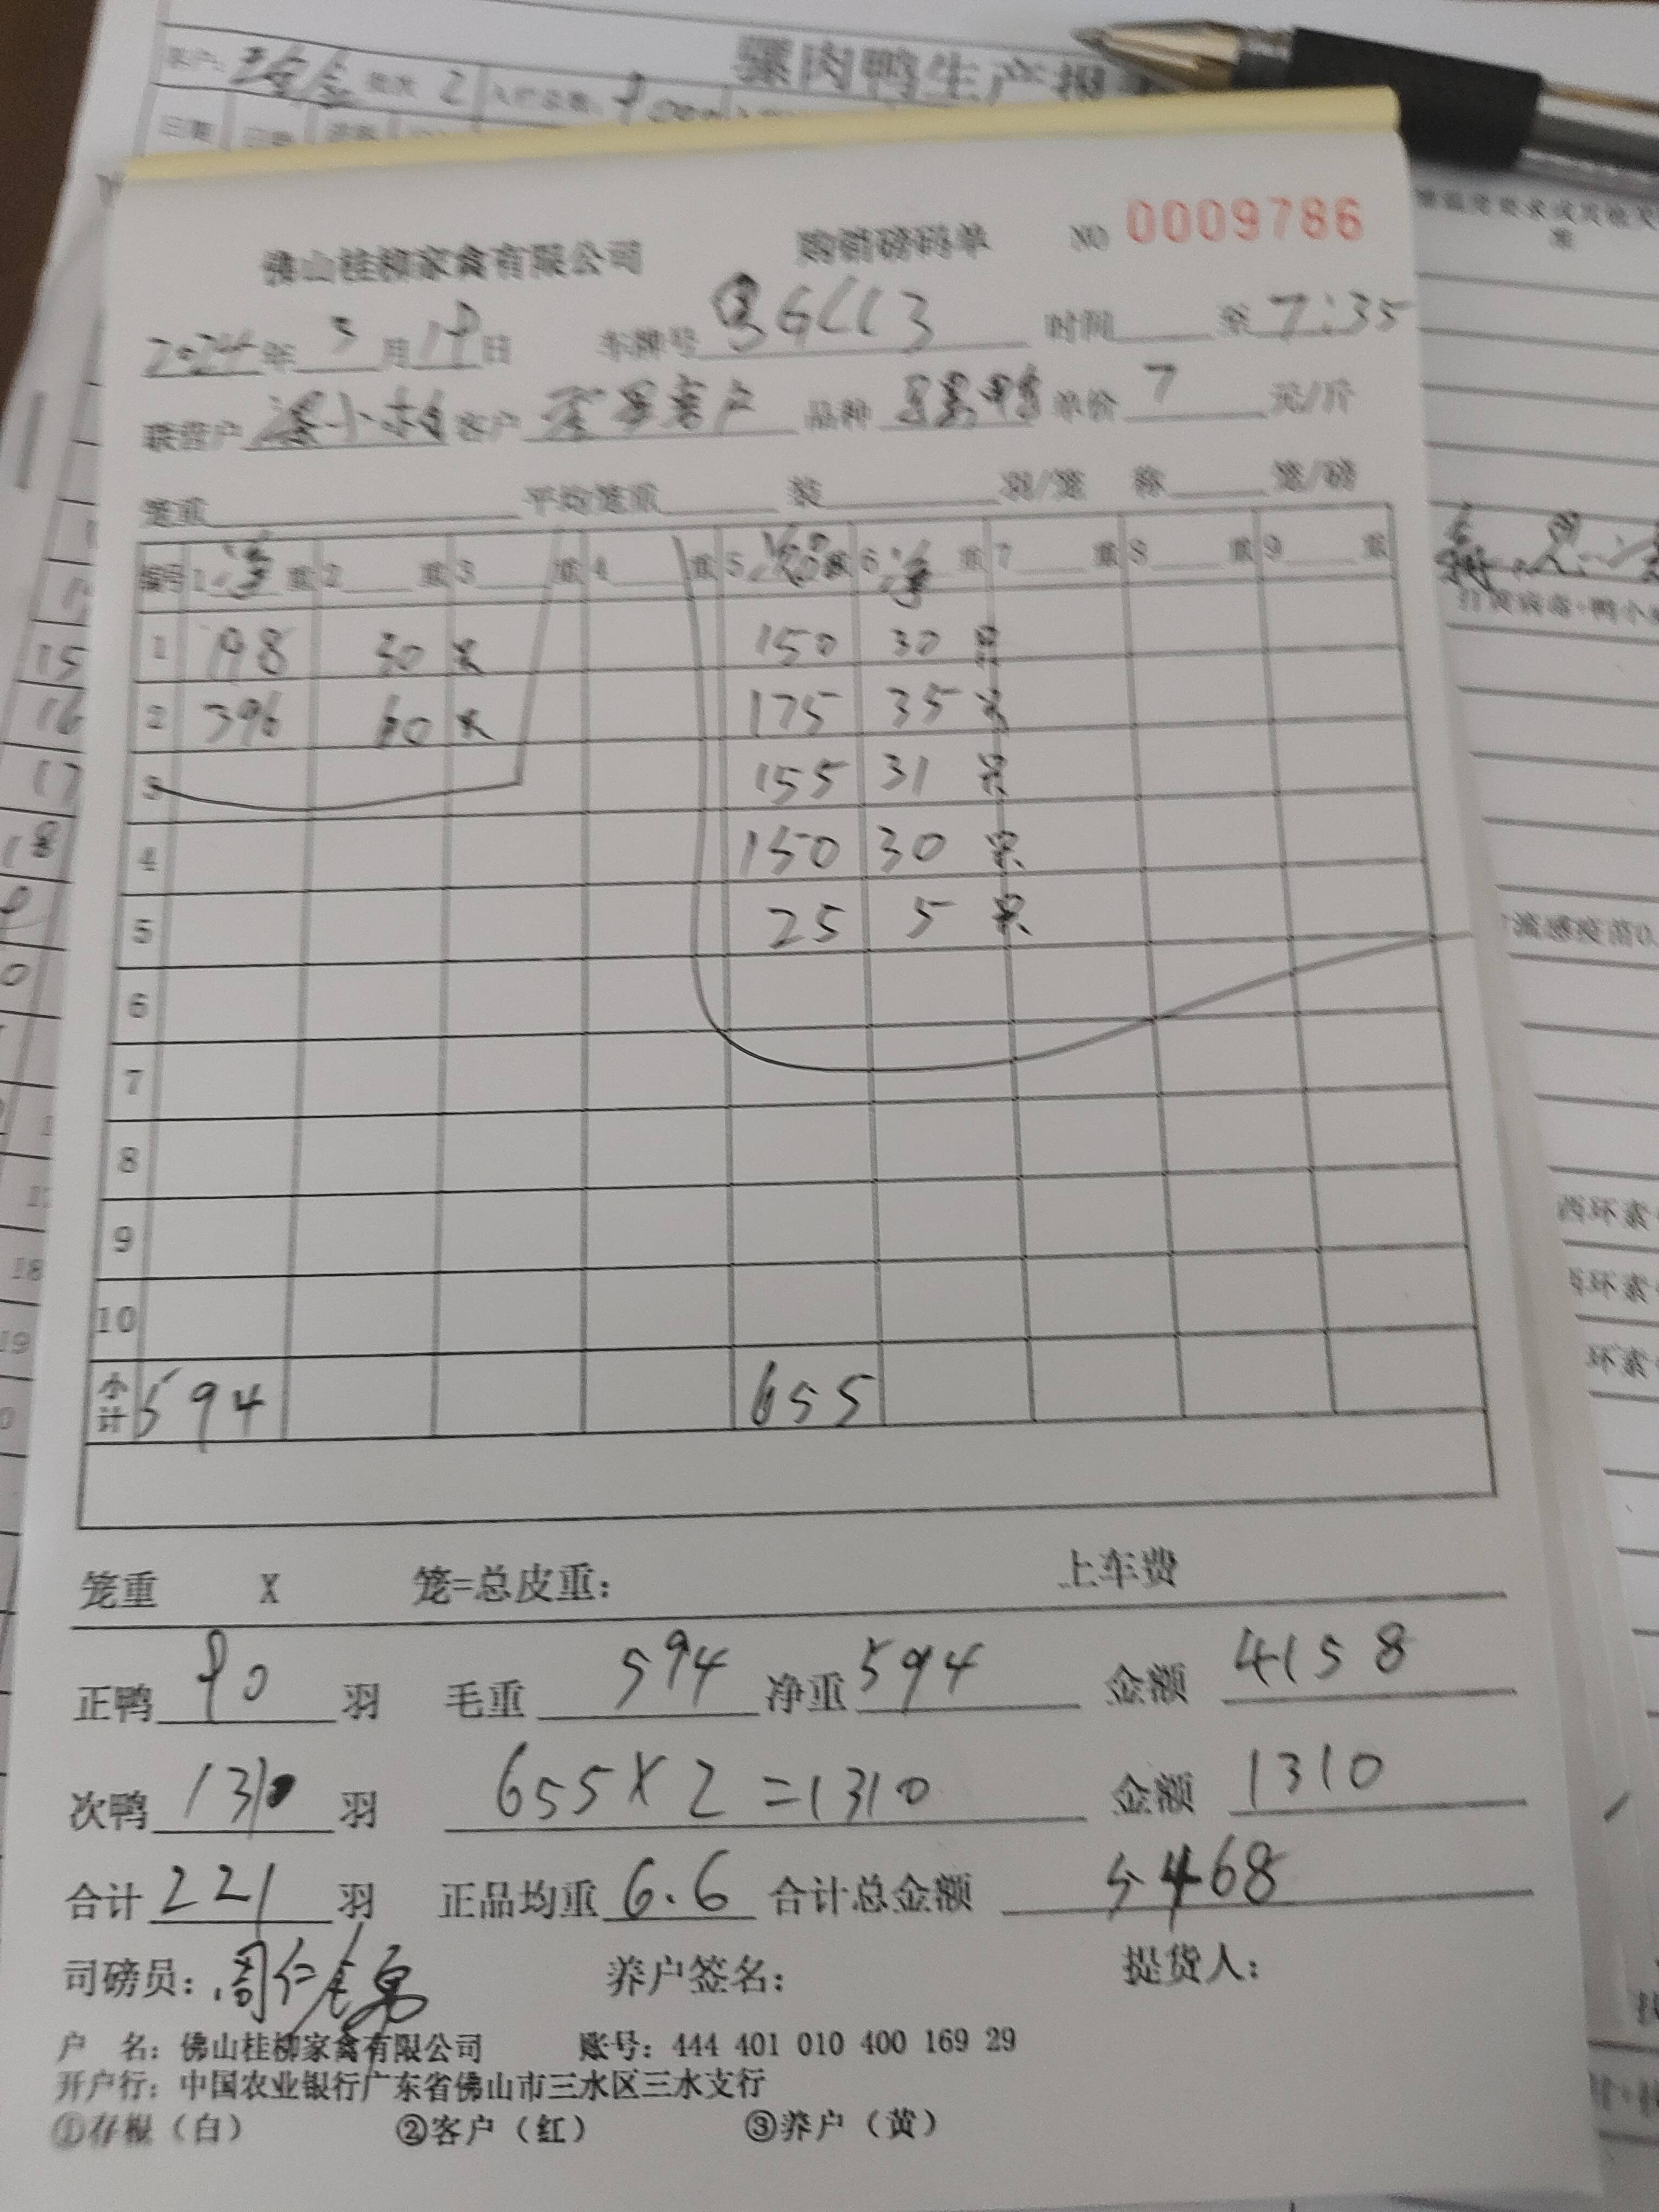 骡肉鸭生产报
批次 2 入栏总数:
日期 日龄
佛山桂柳家禽有限公司 购销磅码单 NO 0009786
2024年 3月19日 车牌号 时间 至 7:35
联营户 梁小梅 客户 零星客户 品种 骡鸭 单价 7 元/斤
笼重 平均笼重 装 羽/笼 称 笼/磅
编号 1 净 重 2 重 3 重 4 重 5 重 6 净 重 7 重 8 重 9 重
1 198 30 只 150 30 只
2 396 60 只 175 35 只
3 155 31 只
4 150 30 只
5 25 5 只
6
7
8
9
10
小计 594 655
笼重 X 笼=总皮重: 上车费
正鸭 90 羽 毛重 594 净重 594 金额 4158
次鸭 131 羽 655X2=1310 金额 1310
合计 221 羽 正品均重 6.6 合计总金额 5468
司磅员: 养户签名: 提货人:
户 名: 佛山桂柳家禽有限公司 账号: 444 401 010 400 169 29
开户行: 中国农业银行广东省佛山市三水区三水支行
①存根(白) ②客户(红) ③养户(黄)
15
16
17
18
流感疫苗0.
西环素
环素
环素